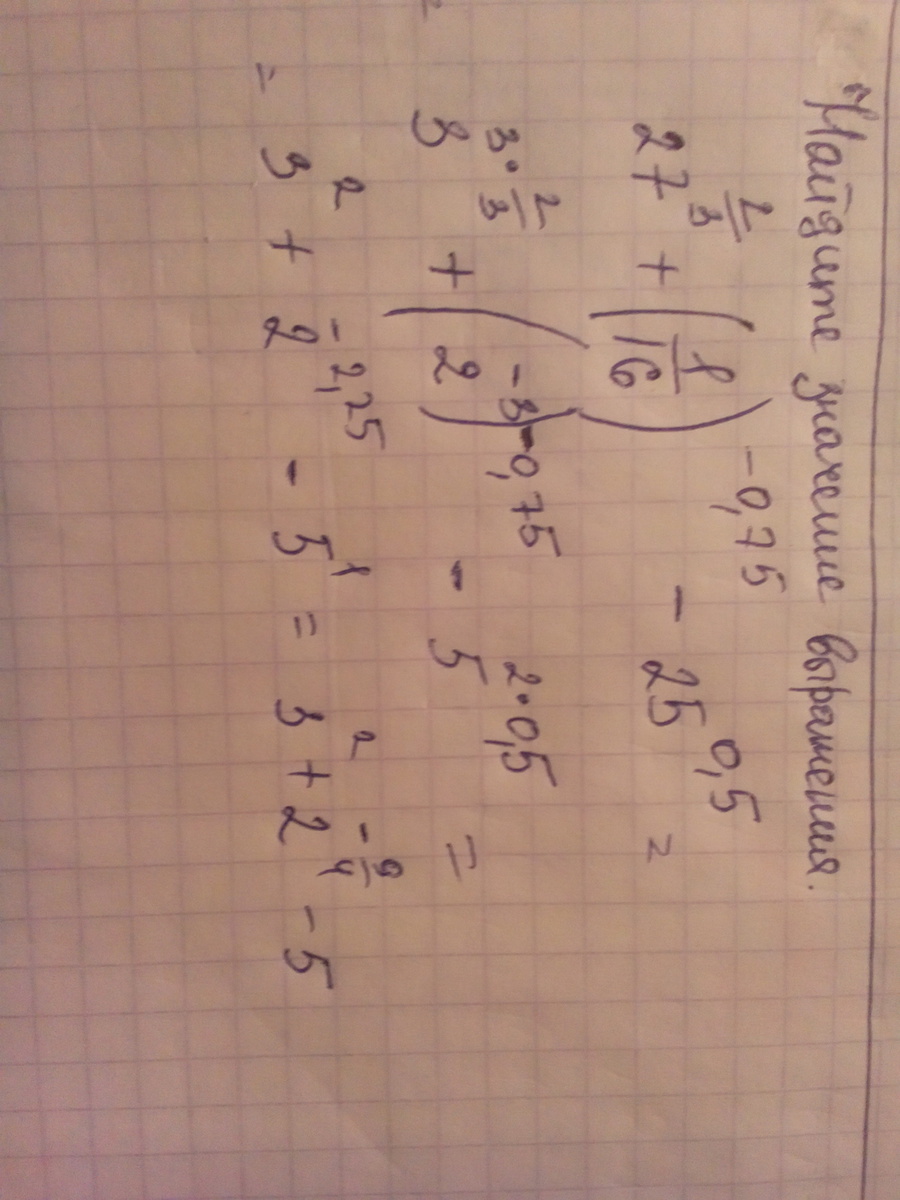 Найдите значение выражения.
27^(2/3) + (1/16)^(-0,75) - 25^(0,5) =
3^(3·2/3) + (2^(-3))^(-0,75) - 5^(2·0,5) =
= 3^2 + 2^(-2,25) - 5^1 = 3^2 + 2^(-9/4) - 5